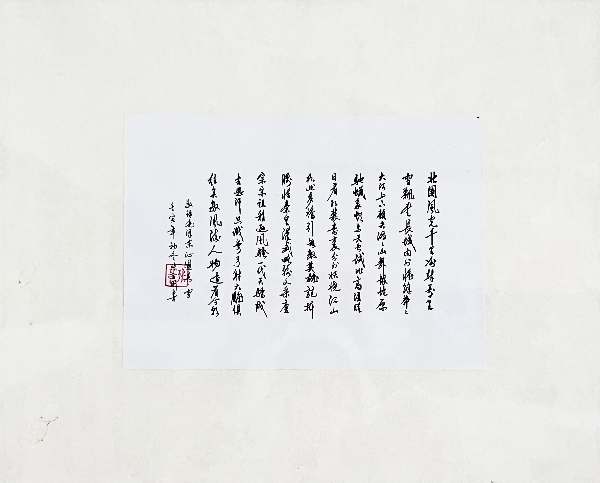 北國風光千里冰封万里
雪飘望長城内外惟餘莽々
大河上下頓失滔々山舞银蛇原
馳蠟象欲与天公试比高须晴
日看红装素裹分外妖娆江山
如此多娇引無數英雄竞折
腰惜秦皇漢武略输文采唐
宗宋祖稍逊風騷一代天骄成
吉思汗只識弯弓射大雕俱
往矣數風流人物还看今朝
毛泽东沁园春雪
壬寅年初冬